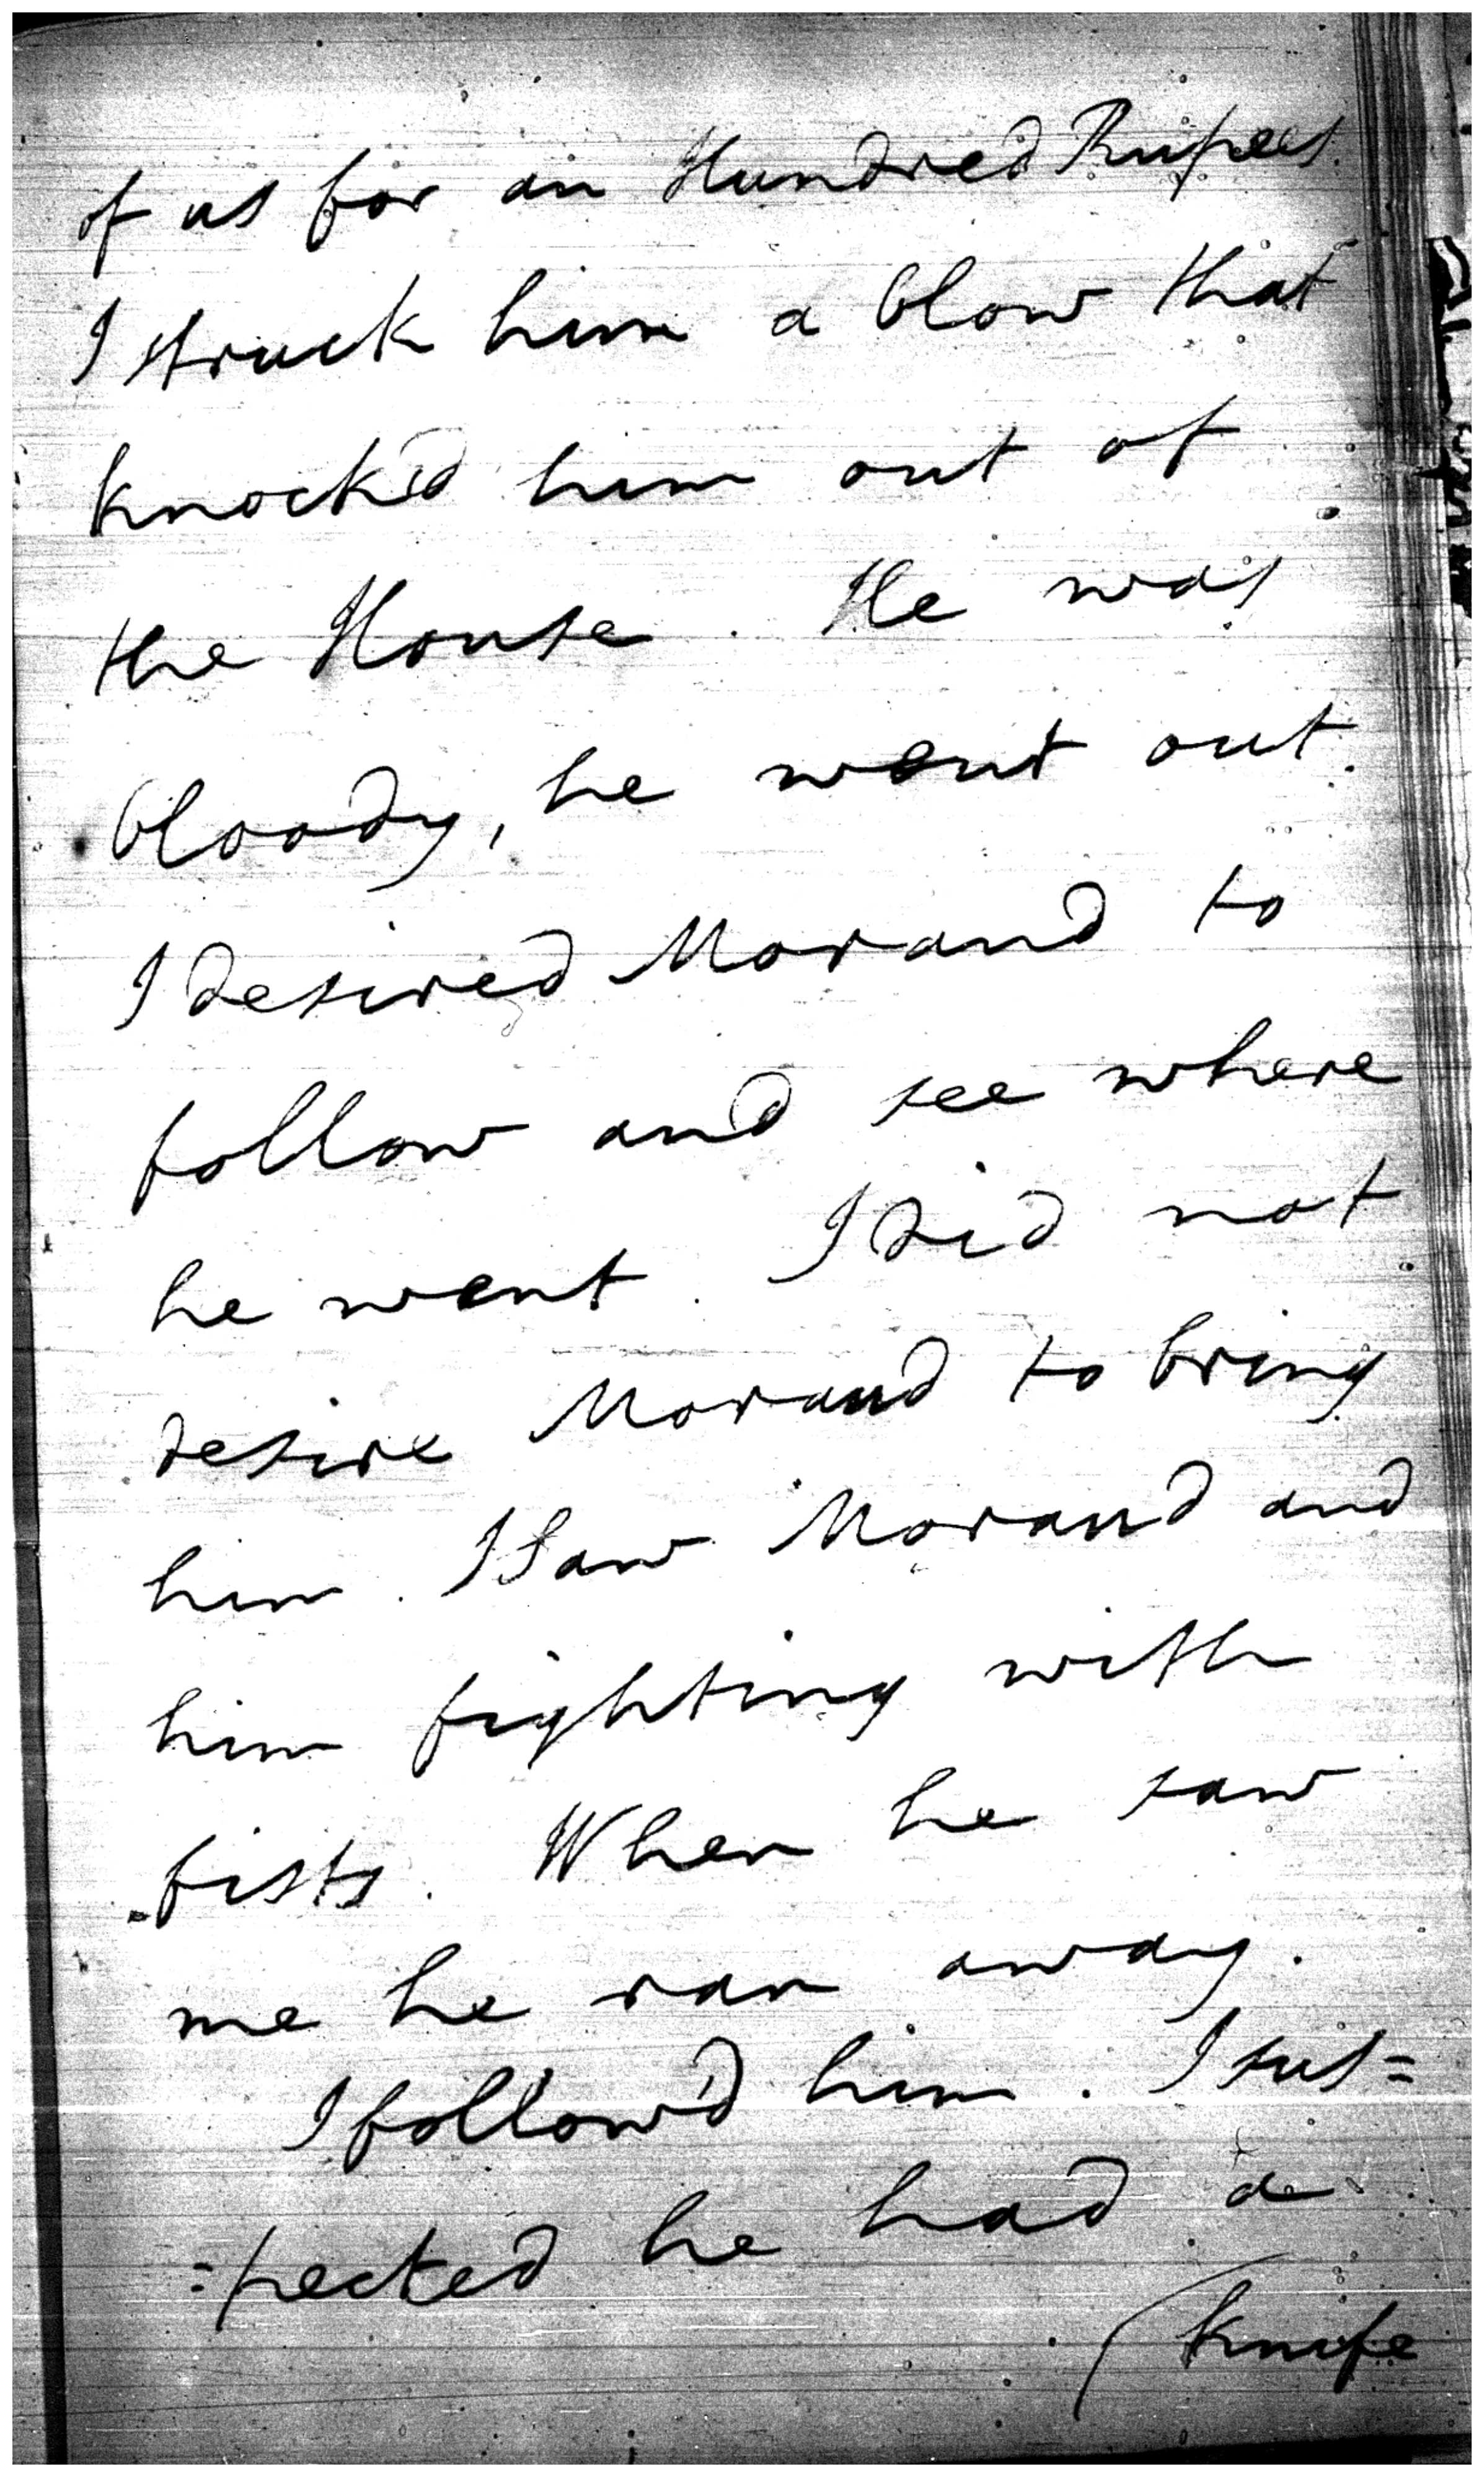 of us for an Hundred Rupees.
I struck him a blow that
knock'd him out of
the House. He was
bloody, he went out.
I desired Morand to
follow and see where
he went. I did not
desire Morand to bring
him. I Saw Morand and
him fighting with
fists. When he saw
me he ran away.
I follow'd him. I sus=
=pected he had a
knife